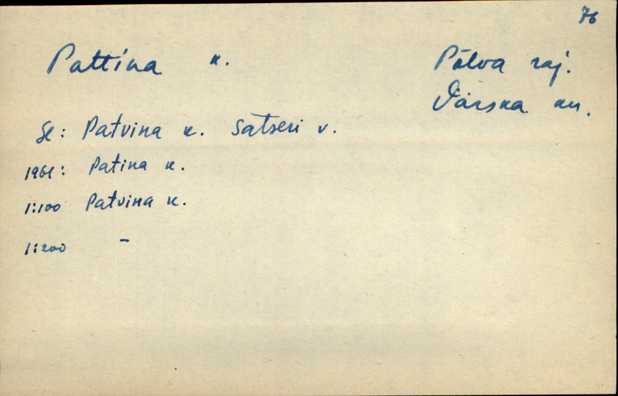 76
Pattina k.
Põlva raj.
Värska kn.
Se: Patvina k. Satseri v.
1961: Patina k.
1:100 Patvina k.
1:200 –